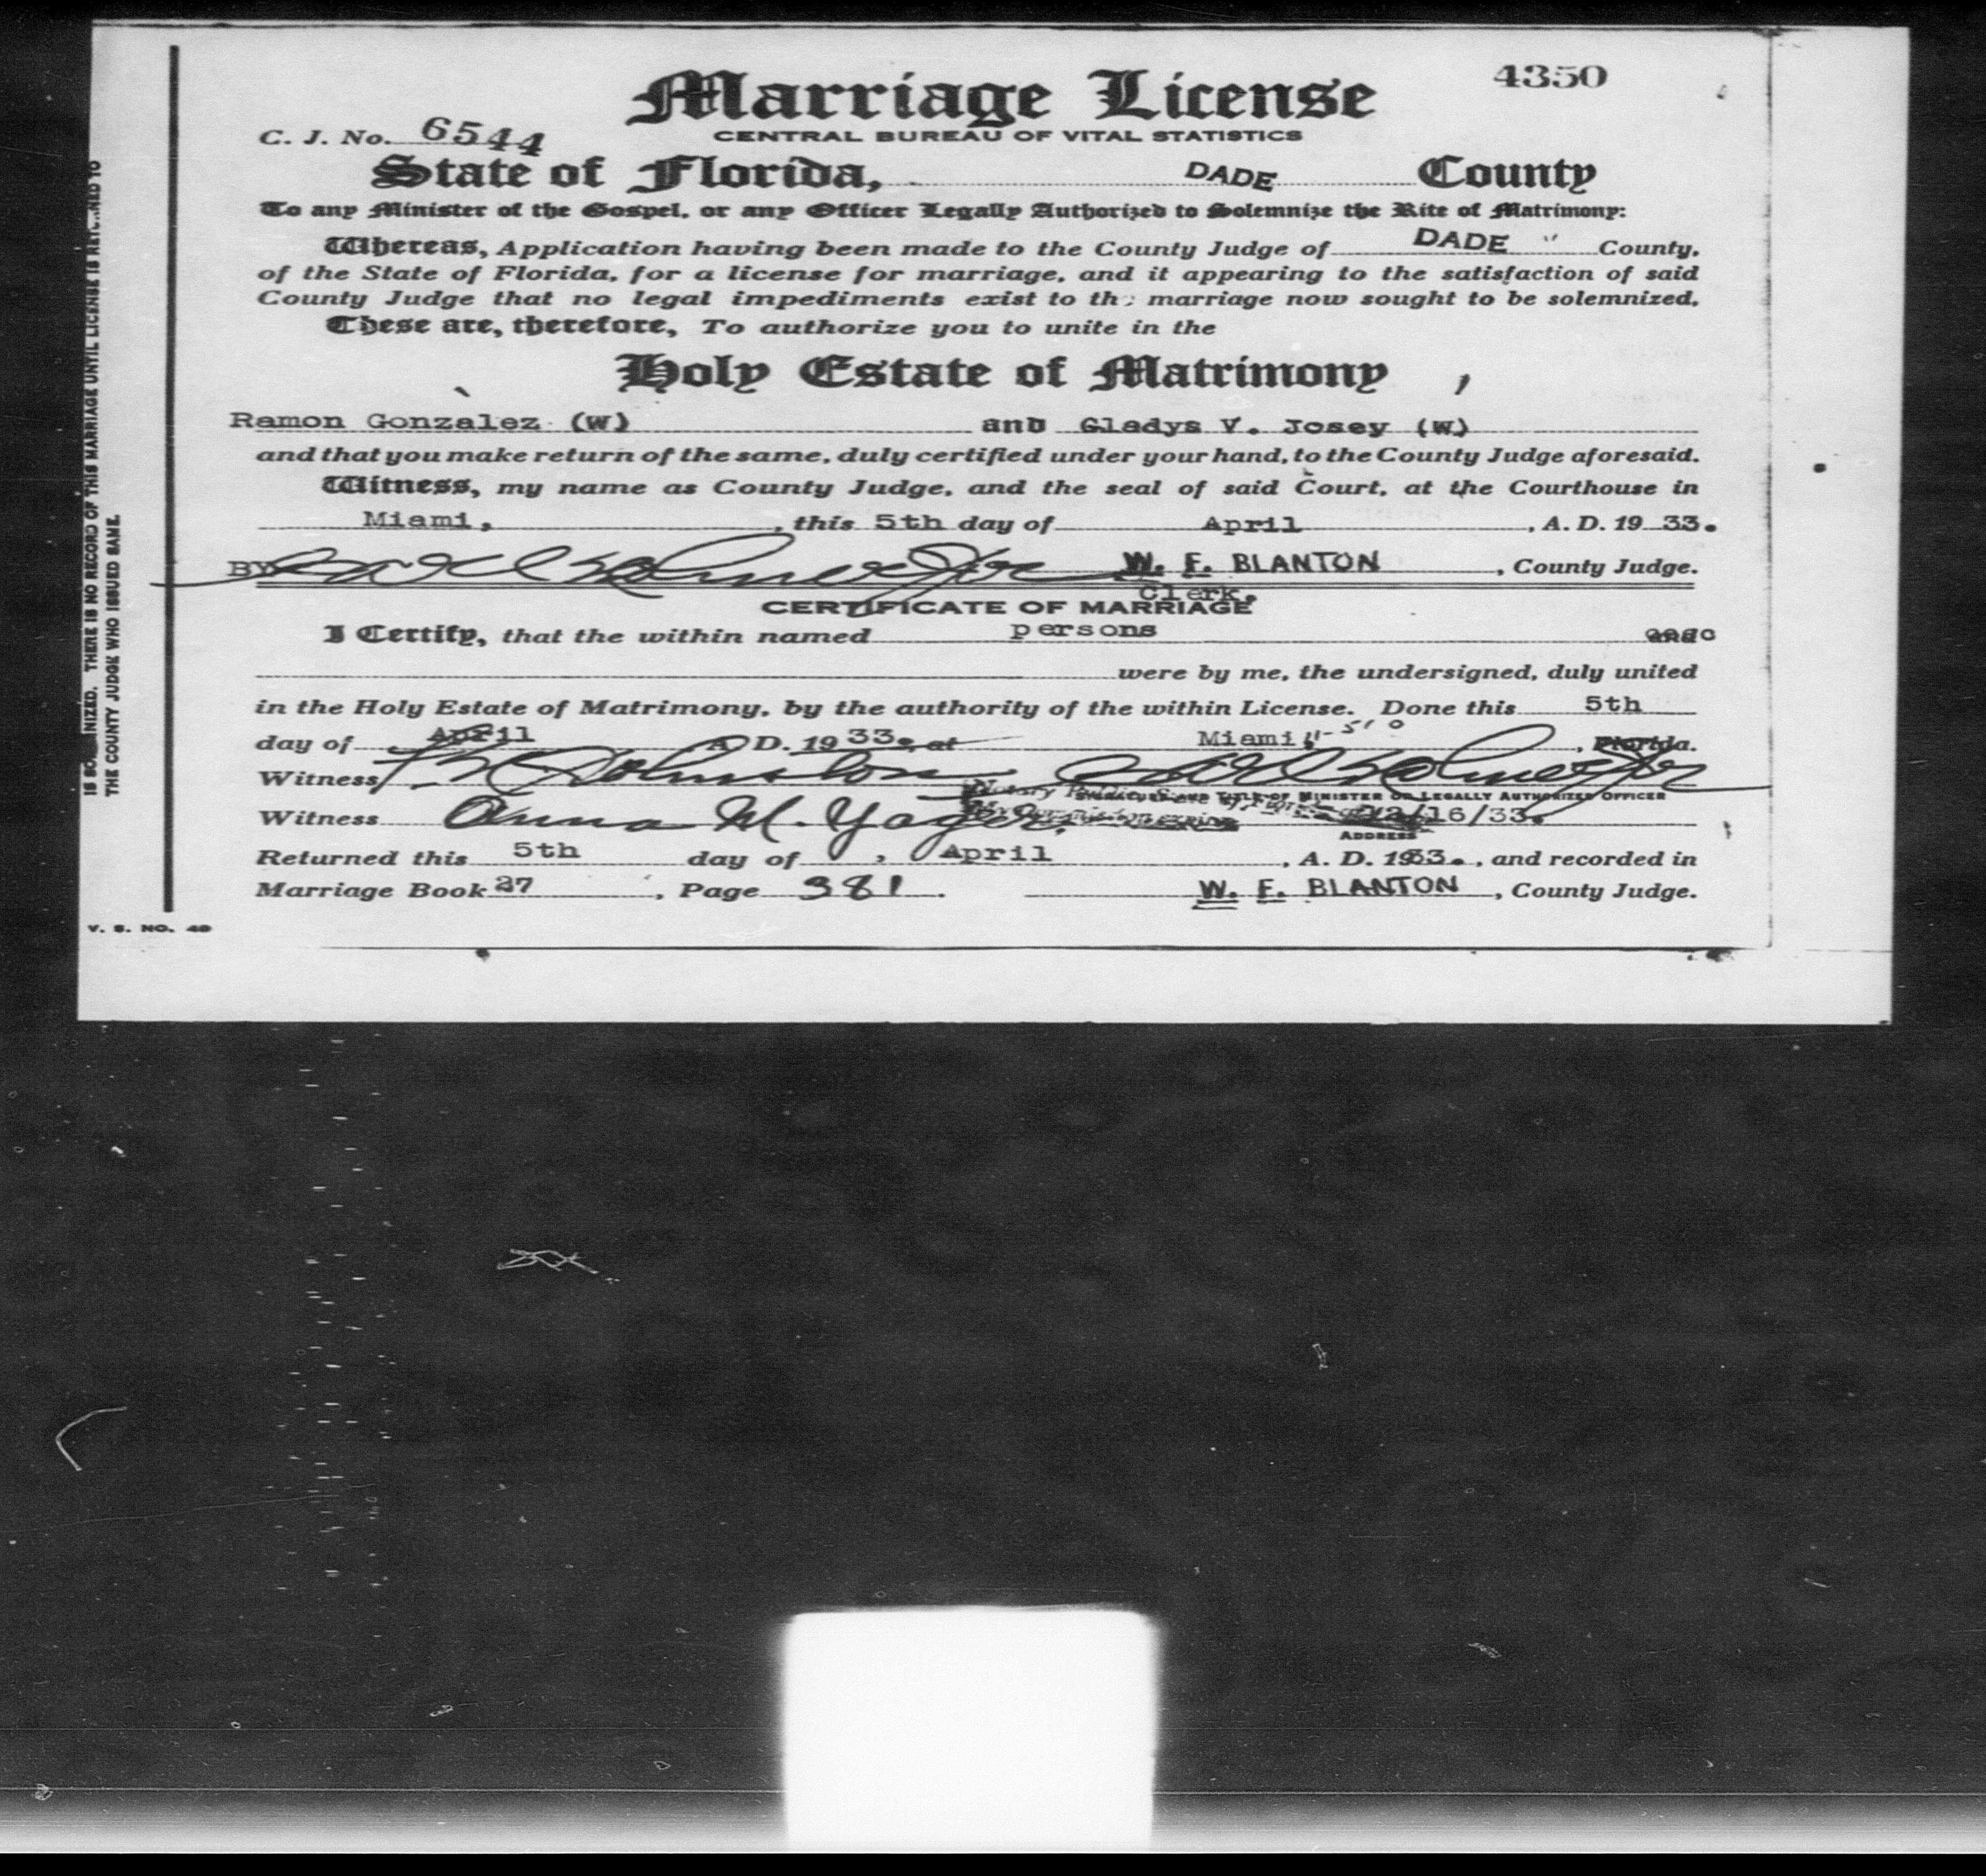 Marriage License
4350
C. J. No. 6544
CENTRAL BUREAU OF VITAL STATISTICS
State of Florida, DADE County
To any Minister of the Gospel, or any Officer Legally Authorized to Solemnize the Rite of Matrimony:
Whereas, Application having been made to the County Judge of DADE County,
of the State of Florida, for a license for marriage, and it appearing to the satisfaction of said
County Judge that no legal impediments exist to the marriage now sought to be solemnized,
These are, therefore, To authorize you to unite in the
Holy Estate of Matrimony
Ramon Gonzalez (W) and Gladys V. Josey (W)
and that you make return of the same, duly certified under your hand, to the County Judge aforesaid.
Witness, my name as County Judge, and the seal of said Court, at the Courthouse in
Miami, this 5th day of April, A. D. 19 33.
BY W. F. BLANTON, County Judge.
Clerk.
CERTIFICATE OF MARRIAGE
I Certify, that the within named persons and
were by me, the undersigned, duly united
in the Holy Estate of Matrimony, by the authority of the within License. Done this 5th
day of April A. D. 19 33, at Miami, Florida.
Witness
TITLE OF MINISTER OR LEGALLY AUTHORIZED OFFICER
Witness Anna M. Yager
Notary Public, State of
16/33.
ADDRESS
Returned this 5th day of, April, A. D. 1933., and recorded in
Marriage Book 27, Page 381. W. F. BLANTON, County Judge.
V. S. NO. 40
IS SOLEMNIZED. THERE IS NO RECORD OF THIS MARRIAGE UNTIL LICENSE IS RETURNED TO
THE COUNTY JUDGE WHO ISSUED SAME.